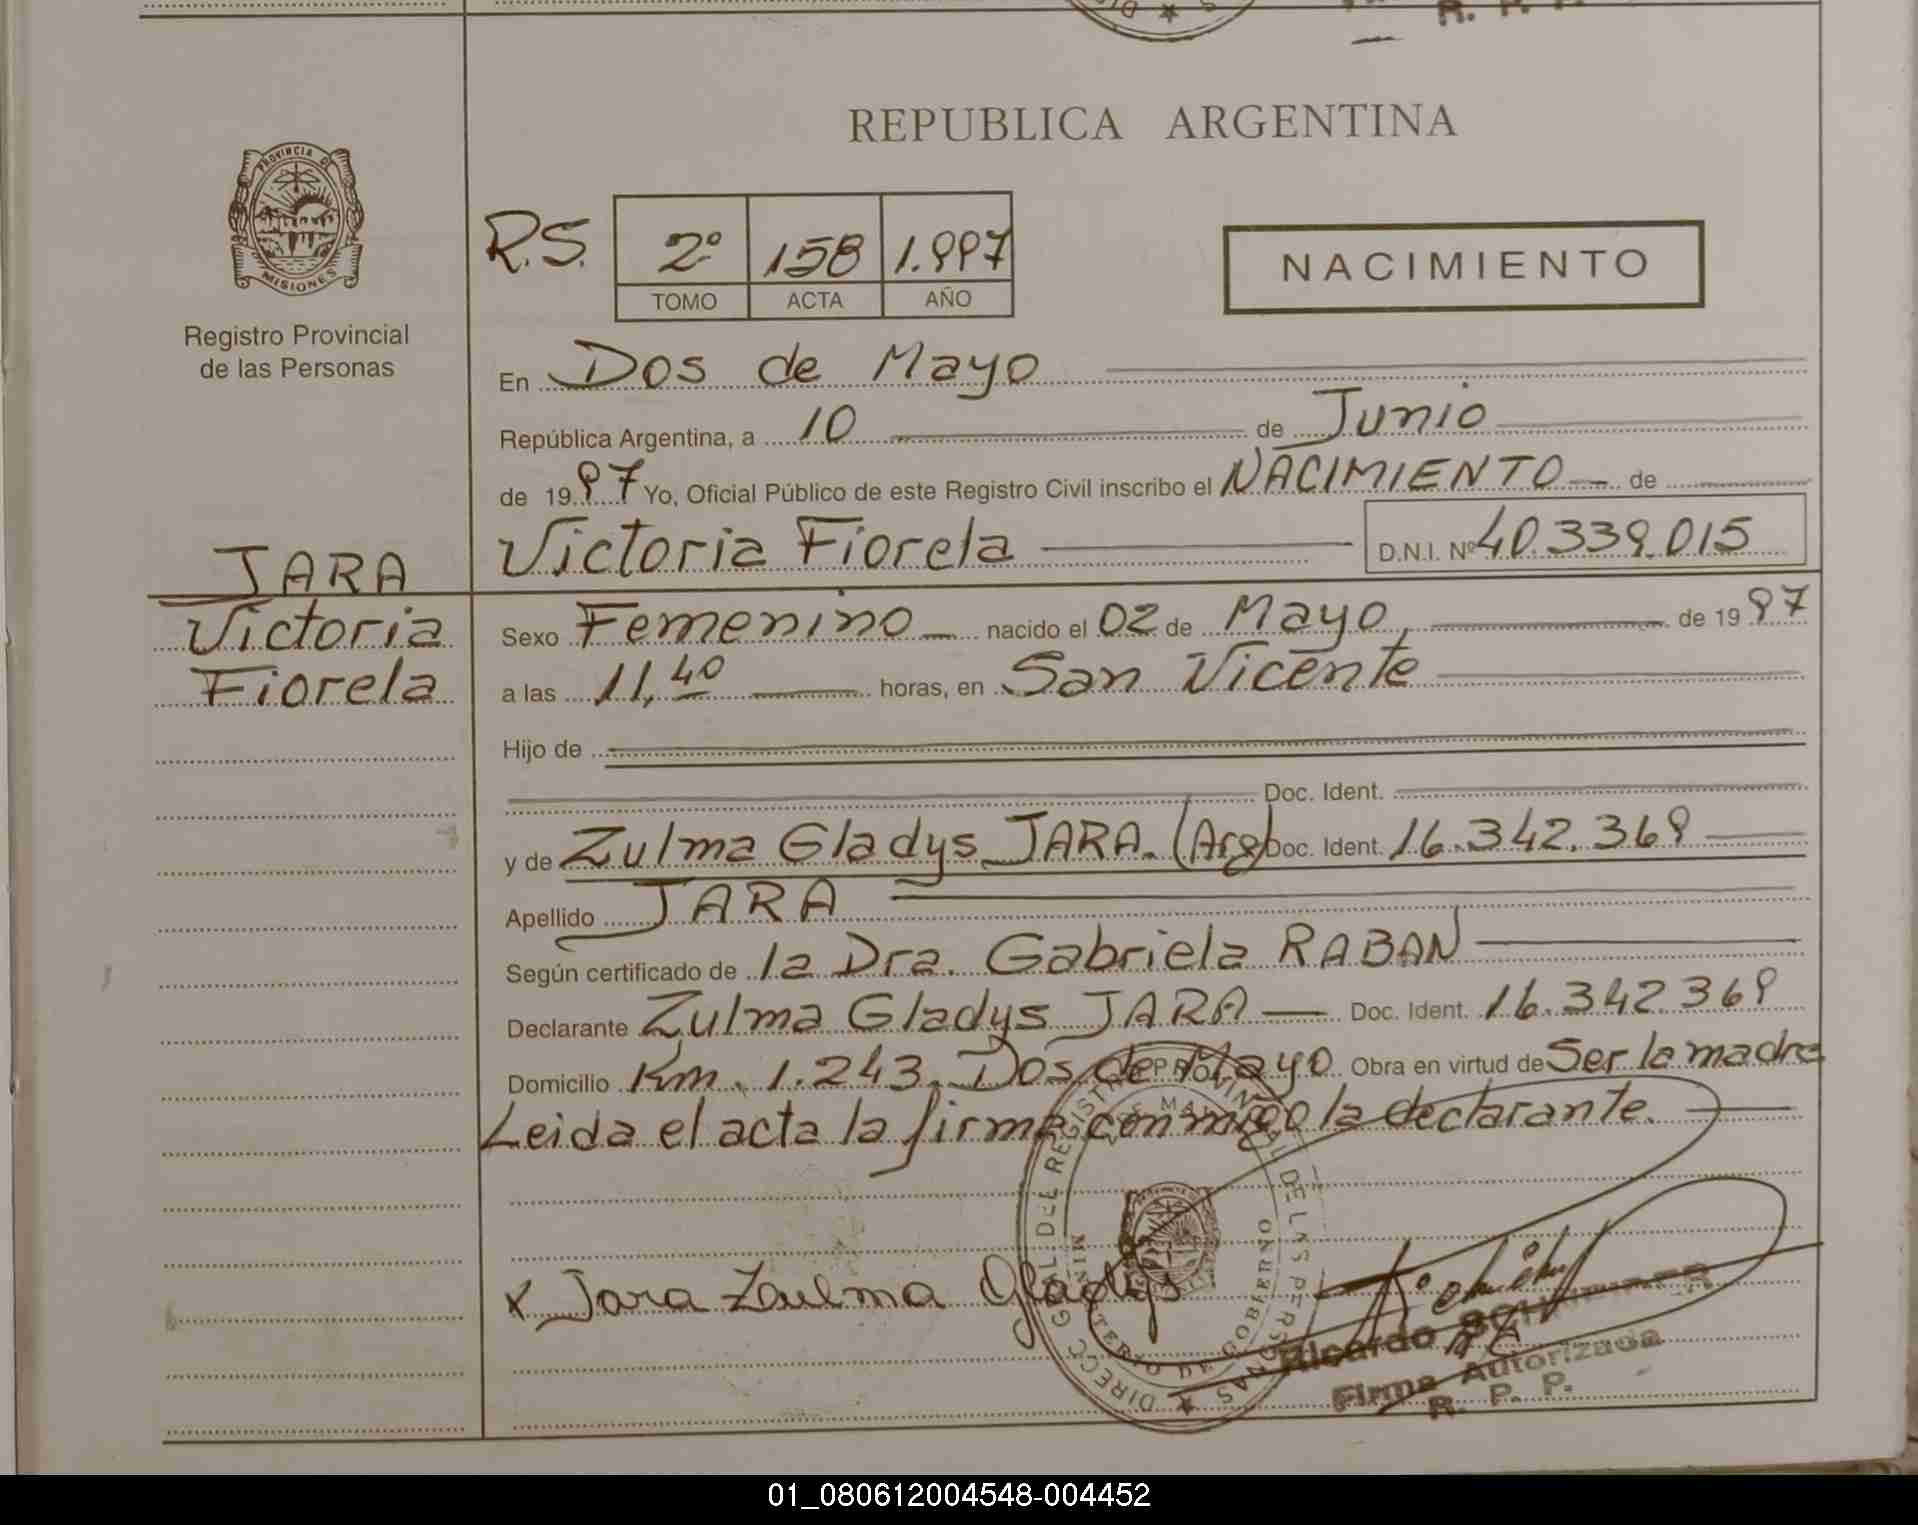 R. P. P.
REPUBLICA ARGENTINA
PROVINCIA DE
MISIONES
Registro Provincial
de las Personas
R.S. 2º 158 1.997
TOMO ACTA AÑO
NACIMIENTO
En Dos de Mayo
República Argentina, a 10 de Junio
de 1997 Yo, Oficial Público de este Registro Civil inscribo el NACIMIENTO de
Victoria Fiorela D.N.I. Nº 40.339.015
JARA
Victoria
Fiorela
Sexo Femenino nacido el 02 de Mayo, de 1997
a las 11,40 horas, en San Vicente
Hijo de
Doc. Ident.
y de Zulma Gladys JARA. (Arg) Doc. Ident. 16.342.369
Apellido JARA
Según certificado de la Dra. Gabriela RABAN
Declarante Zulma Gladys JARA Doc. Ident. 16.342.369
Domicilio Km. 1.243. Dos de Mayo Obra en virtud de Ser la madre
Leida el acta la firma conmigo la declarante.
x Jara Zulma Gladys
DIRECC GRAL DEL REGISTRO PROVINCIAL DE LAS PERSONAS
MINISTERIO DE GOBIERNO
Ricardo
Firma Autorizada
R. P. P.
01_080612004548-004452